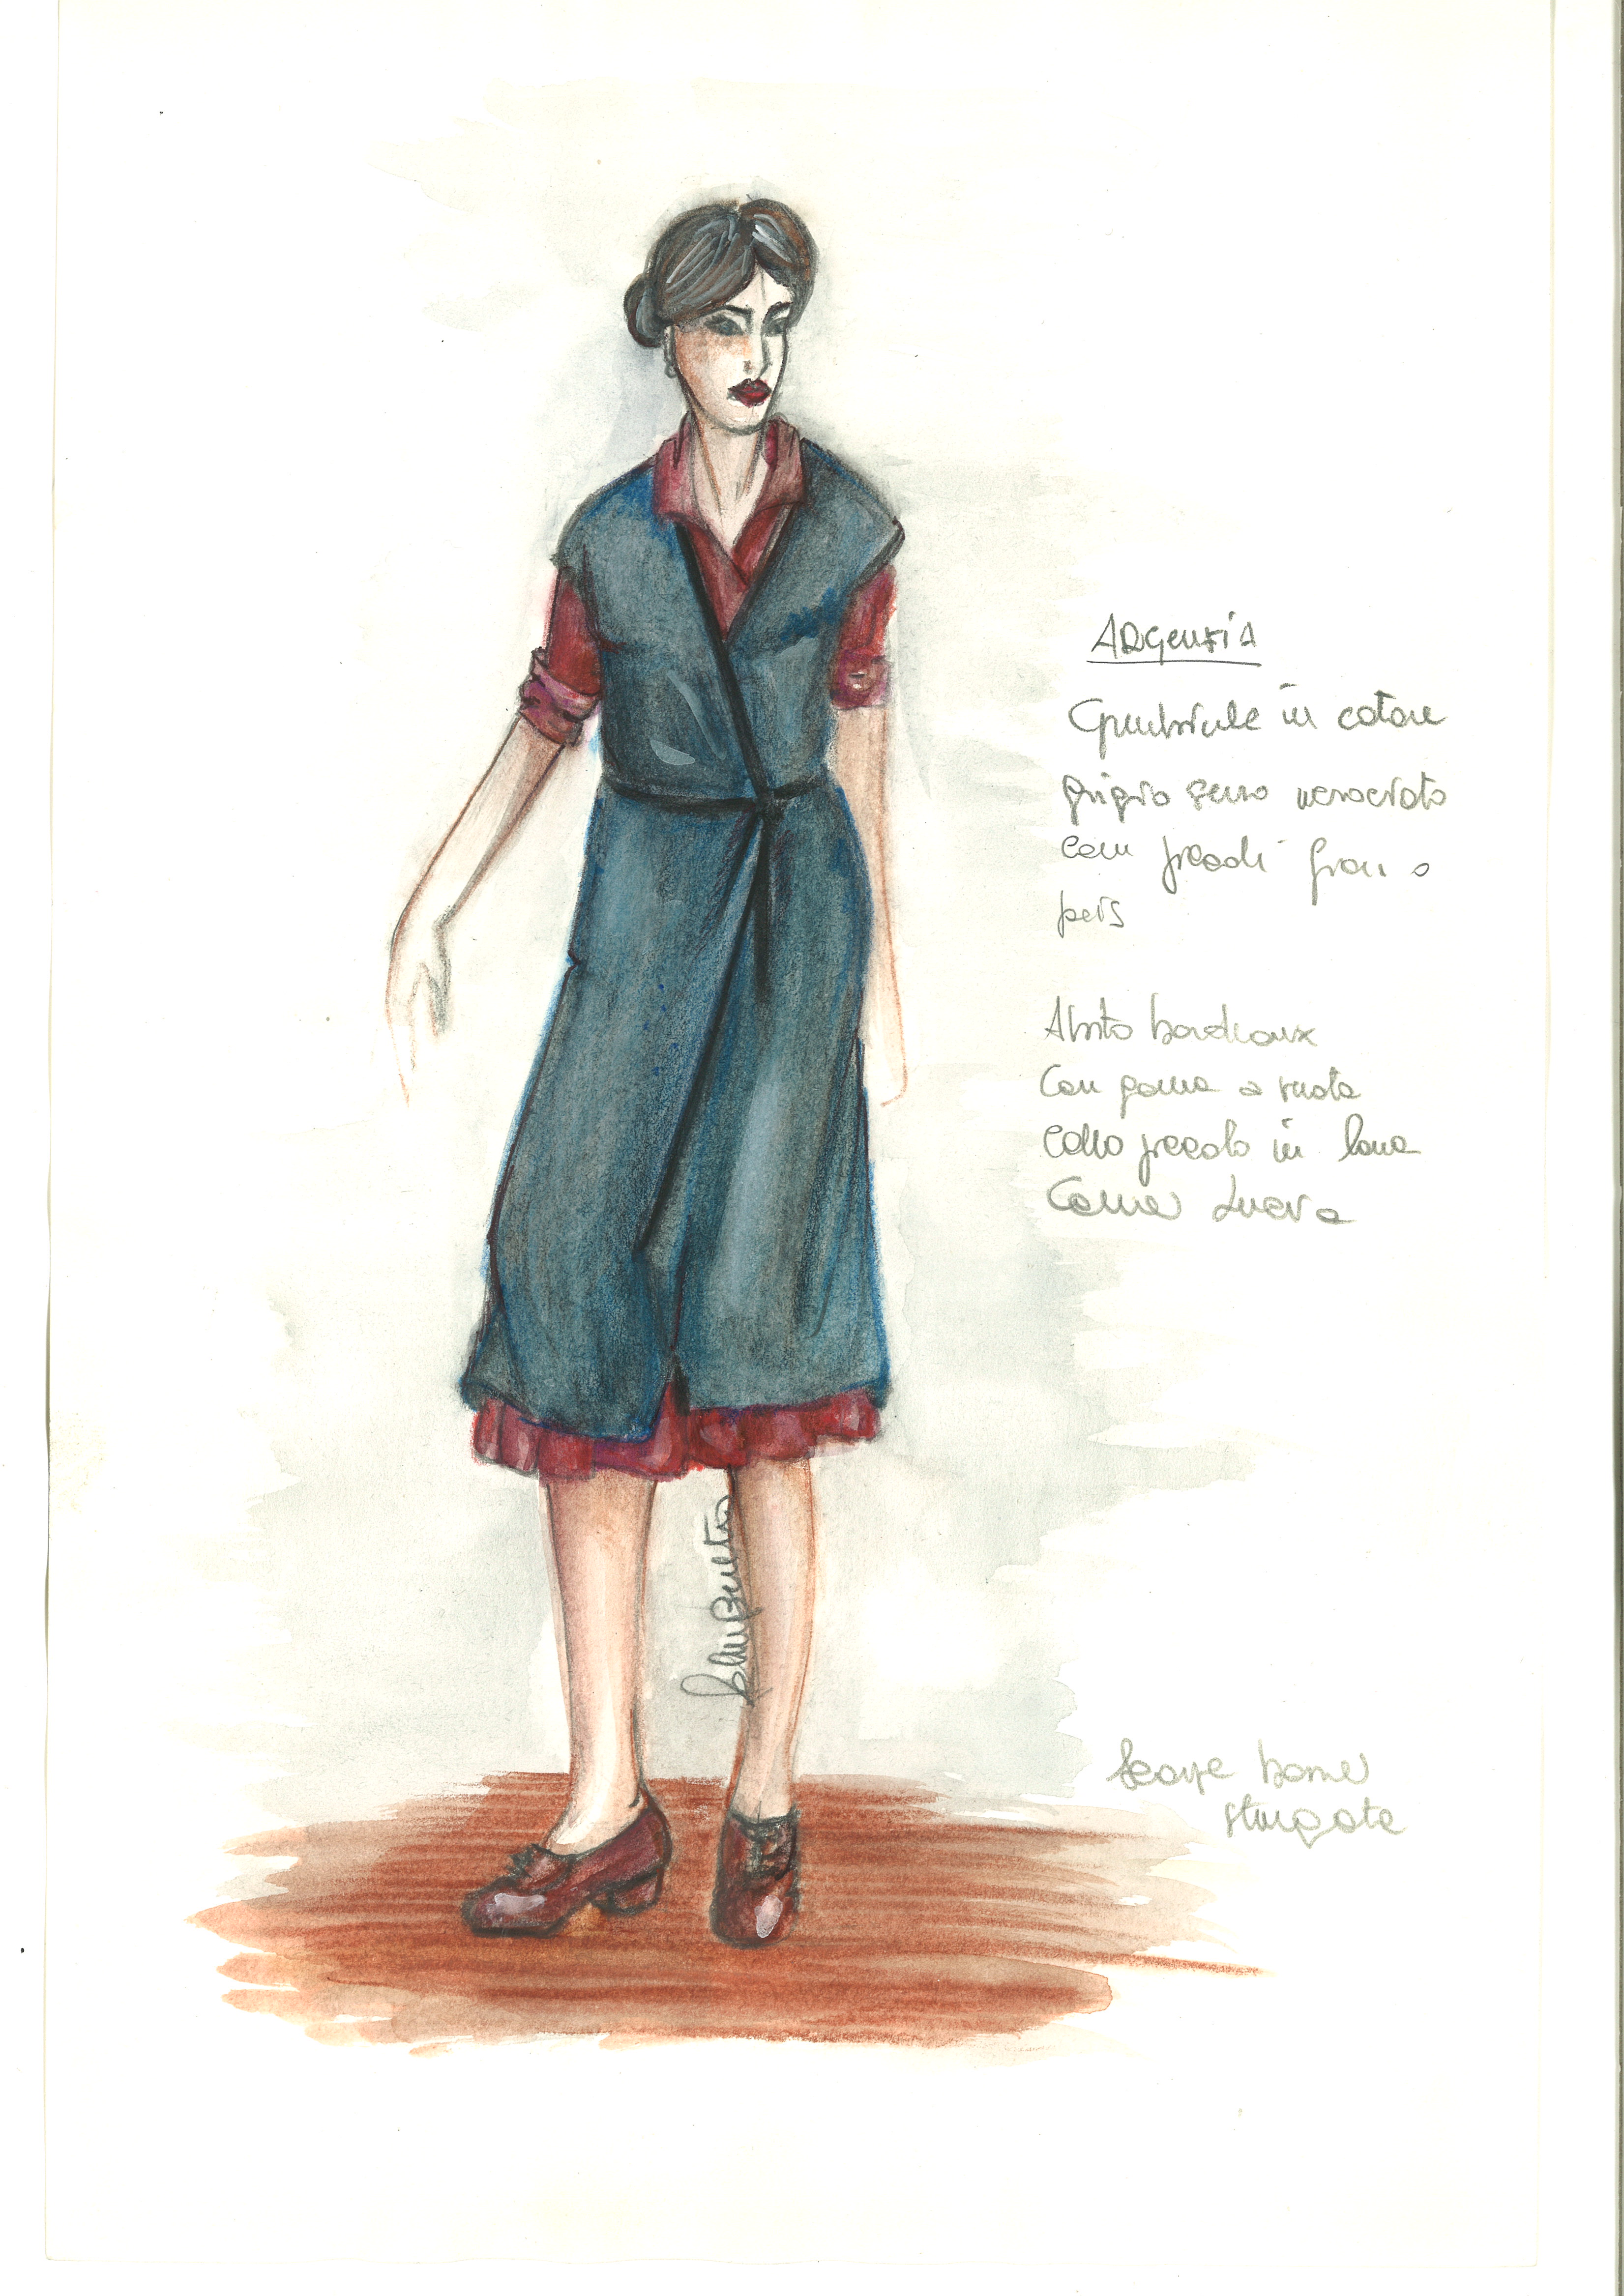 ARgenzia
Grembiule in cotone
grigio ferro
con piccoli fiori o
pois
Abito bordeaux
Con gonna a ruota
Collo piccolo in lana
Scarpe
stringate